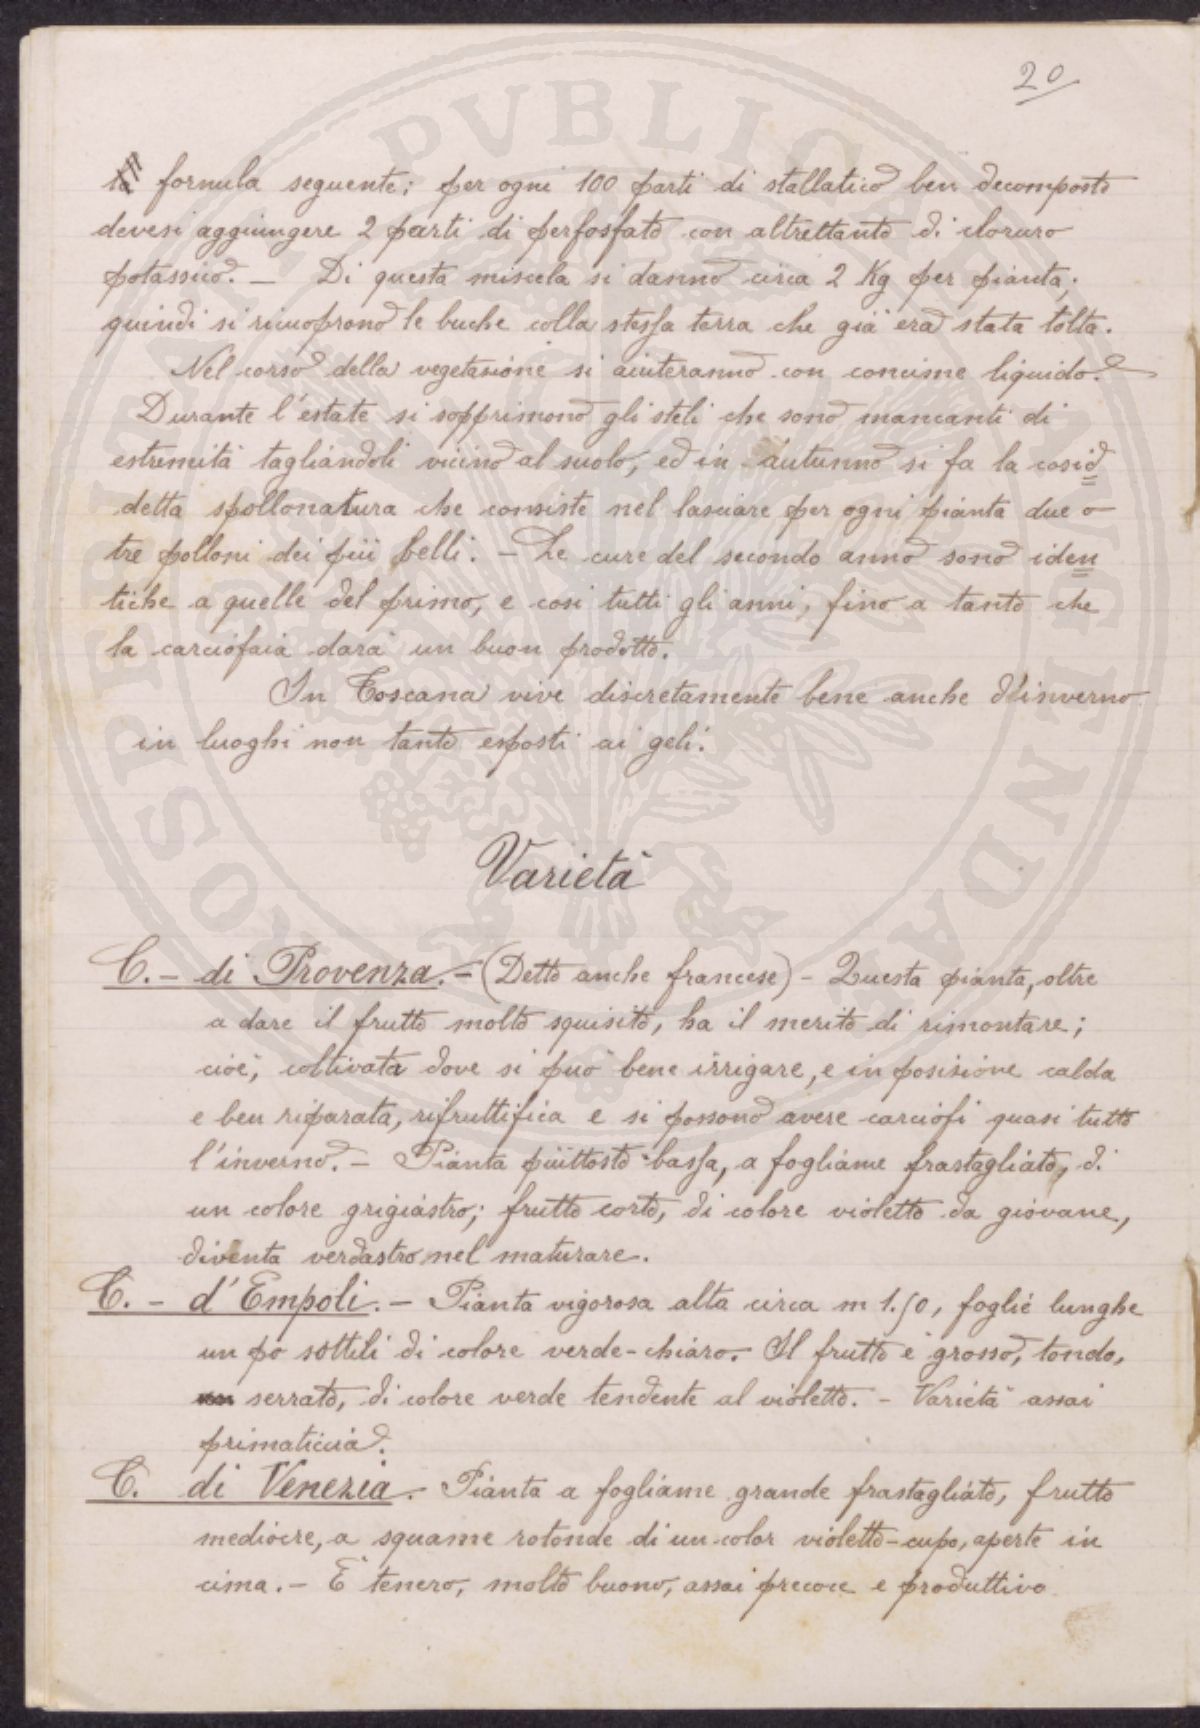 20
ta formula seguente: per ogni 100 parti di stallatico ben decomposto
devesi aggiungere 2 parti di perfosfato con altrettanto di cloruro
potassico. — Di questa miscela si danno circa 2 Kg per pianta;
quindi si ricuoprono le buche colla stessa terra che già era stata tolta.
Nel corso della vegetazione si aiuteranno con concime liquido.
Durante l'estate si sopprimono gli steli che sono mancanti di
estremità tagliandoli vicino al suolo, ed in autunno si fa la cosid=
detta spollonatura che consiste nel lasciare per ogni pianta due o
tre polloni dei più belli. — Le cure del secondo anno sono iden=
tiche a quelle del primo, e così tutti gli anni, fino a tanto che
la carciofaia darà un buon prodotto.
In Toscana vive discretamente bene anche d'inverno
in luoghi non tanto esposti ai geli.
Varietà
C. - di Provenza. - (Detto anche francese) - Questa pianta, oltre
a dare il frutto molto squisito, ha il merito di rimontare;
cioè, coltivata dove si può bene irrigare, e in posizione calda
e ben riparata, rifruttifica e si possono avere carciofi quasi tutto
l'inverno. - Pianta piuttosto bassa, a fogliame frastagliato, di
un colore grigiastro; frutto corto, di colore violetto da giovane,
diventa verdastro nel maturare.
C. - d'Empoli. - Pianta vigorosa alta circa m 1.50, foglie lunghe
un po sottili di colore verde-chiaro. Il frutto è grosso, tondo,
serrato, di colore verde tendente al violetto. - Varietà assai
primaticcia.
C. di Venezia. Pianta a fogliame grande frastagliato, frutto
mediocre, a squame rotonde di un color violetto-cupo, aperte in
cima. - È tenero, molto buono, assai precoce e produttivo